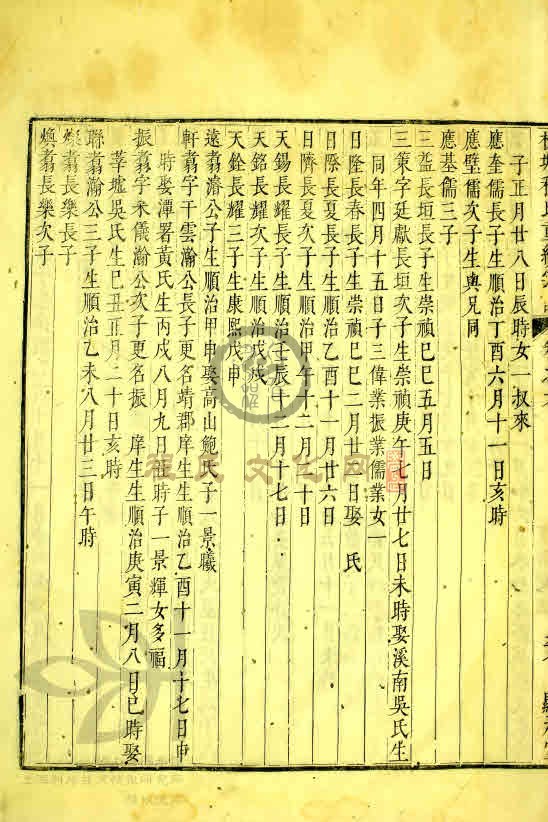 子正月廿八日辰時女一叔來
應奎儒長子生順治丁酉六月十一日亥時
應璧儒次子生與兄同
應基儒三子
三益長垣長子生崇禎己巳五月五日
三策字廷獻長垣次子生崇禎庚午七月廿七日未時娶溪南吳氏生
同年四月十五日子三偉業振業儒業女一
日隆長春長子生崇禎己巳二月廿 日娶 氏
日際長夏長子生順治乙酉十一月廿六日
日濟長夏次子生順治甲午十二月二十日
天錫長耀長子生順治壬辰十二月十七日
天銘長耀次子生順治戊戌
天銓長耀三子生康熙戊申
遠翥濬公子生順治甲申娶高山鮑氏子一景曦
軒翥字干雲瀚公長子更名靖郡庠生生順治乙酉十一月十七日申
時娶潭署黃氏生丙戌八月九日丑時子一景輝女多福
振翥字來儀瀚公次子更名振 庠生生順治庚寅二月八日巳時娶
莘墟吳氏生己丑正月二十日亥時
聯翥瀚公三子生順治乙未八月廿三日午時
燦翥長樂長子
煥翥長樂次子
程氏文化网